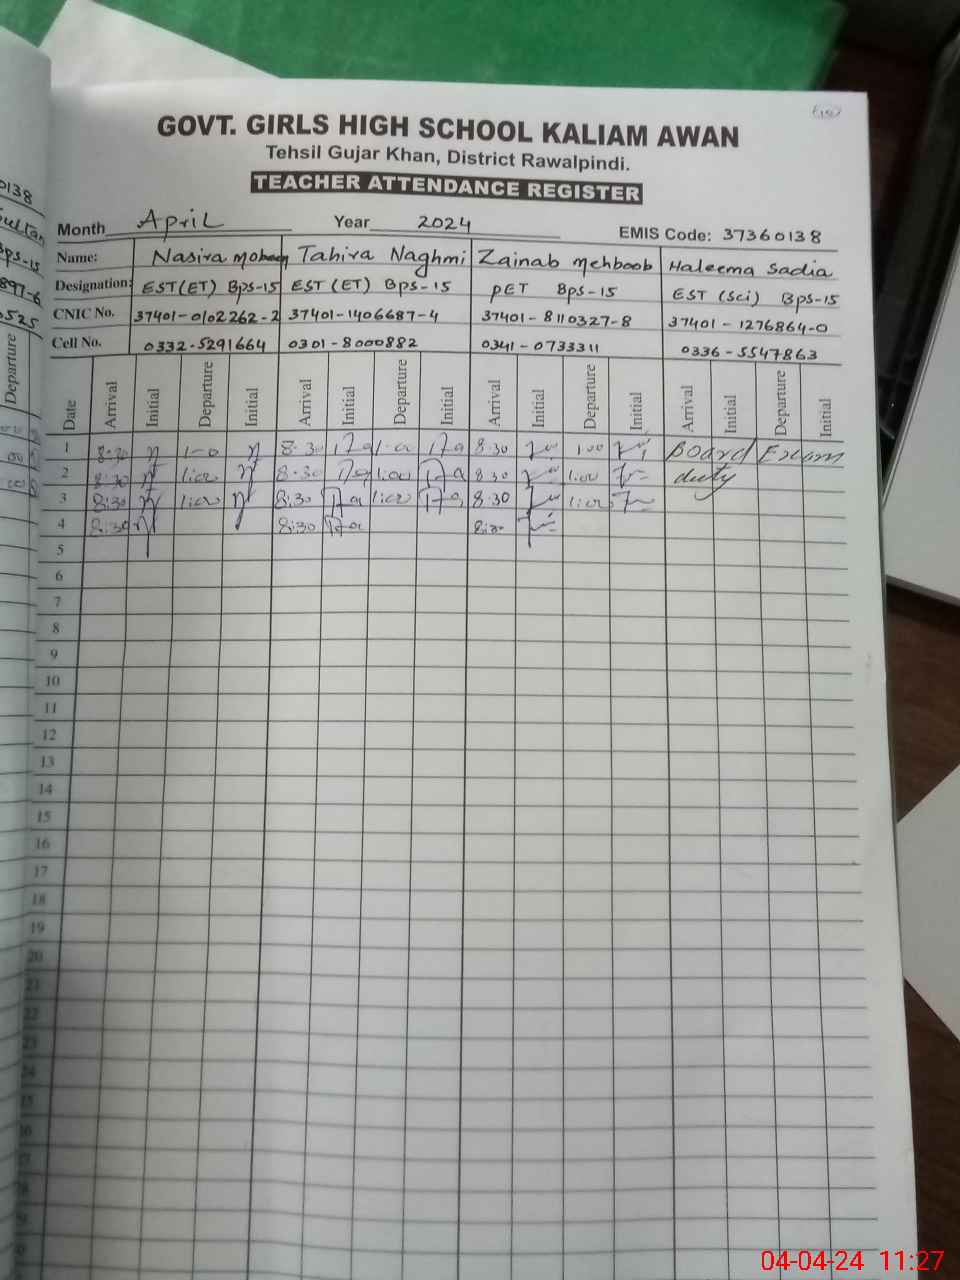 GOVT. GIRLS HIGH SCHOOL KALIAM AWAN
Tehsil Gujar Khan, District Rawalpindi.
TEACHER ATTENDANCE REGISTER
Month April Year 2024 EMIS Code: 37360138
Name: Nasira Tahira Naghmi Zainab Mehboob Haleema Sadia
Designation: EST(ET) Bps-15 EST (ET) Bps-15 PET Bps-15 EST (Sci) Bps-15
CNIC No. 37401-0102262-2 37401-1406687-4 37401-8110327-8 37401-1276864-0
Cell No. 0332-5291664 0301-8000882 0341-0733311 0336-5547863
Date Arrival Initial Departure Initial Arrival Initial Departure Initial Arrival Initial Departure Initial Arrival Initial Departure Initial
1 8:30 8:30 8:30 Board Exam
2 8:30 8:30 8:30 duty
3 8:30 8:30 8:30
4 8:30 8:30 8:30
5
6
7
8
9
10
11
12
13
14
15
16
17
18
19
20
21
22
23
24
0138
Sultan
Bps-15
897-6
0525
Departure
04-04-24 11:27